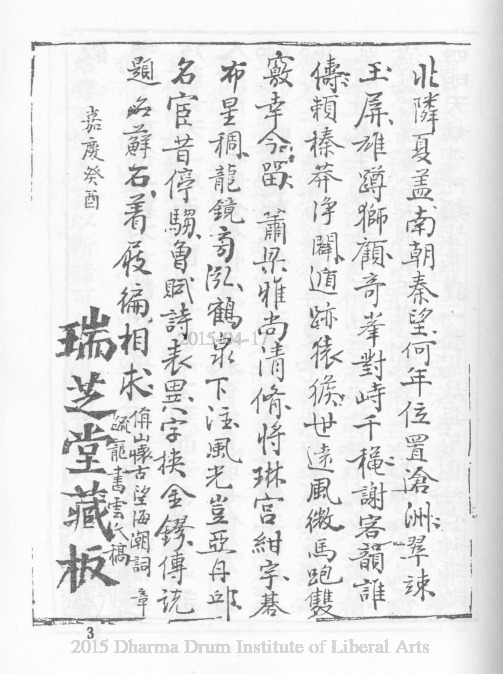 北隣夏盖南朝秦望何年位置滄洲翠竦
玉屏雄蹲獅顧奇峯對峙千穐謝客韻誰
儔頼榛莽浄闢遁跡猿猴世遠風微馬跑雙
竅幸今畱蕭梁雅尚清脩将琳宮紺宇碁
布星稠龍鏡泓鶴泉下注風光豈亞丹邱
名宦昔停騶賦詩表異字挟金鏐傳説
題蘚石着屐徧相求
山懷古望海潮詞章
龍書雲氏稿
嘉慶癸酉
瑞芝堂藏板
3
2015-04-17
2015 Dharma Drum Institute of Liberal Arts